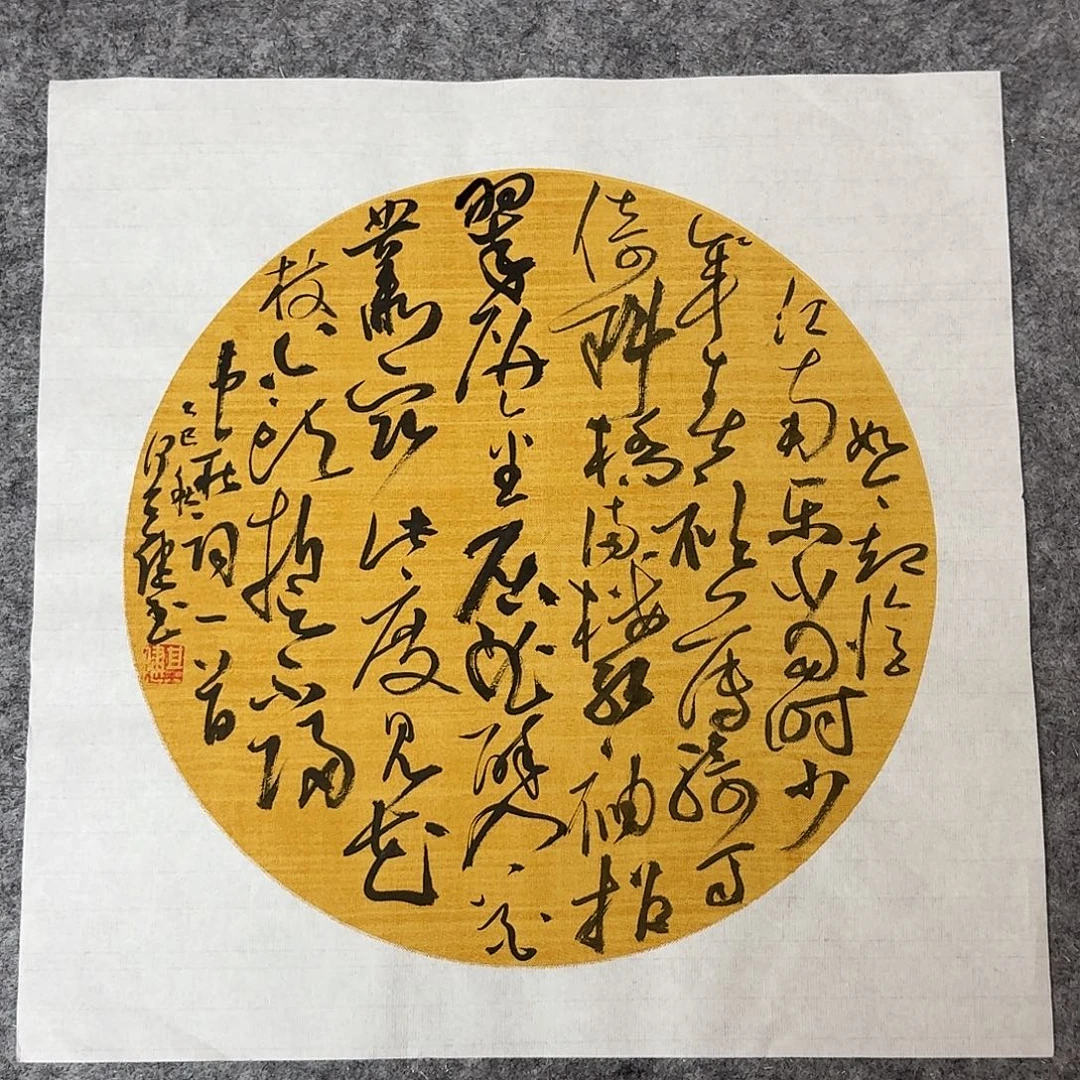 如今却忆
江南乐当时少
年春衫薄骑马
倚斜桥满楼红袖招
翠屏金屈曲醉入花
丛宿此度见花
枝白头誓不归
韦庄词一首
乙巳秋
书